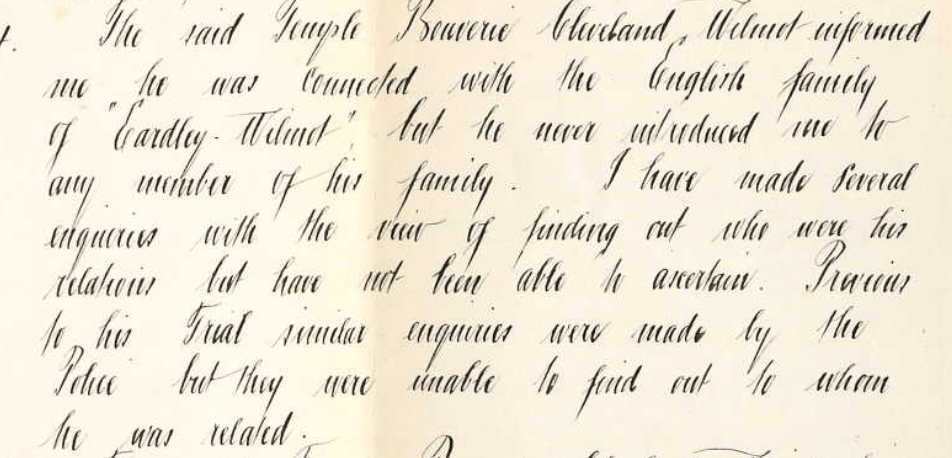 4. The said Temple Bouverie Cleveland Wilmot informed
me he was connected with the English family
of "Eardley-Wilmot", but he never introduced me to
any member of his family. I have made several
enquiries with the view of finding out who were his
relations but have not been able to ascertain. Previous
to his Trial similar enquiries were made by the
Police but they were unable to find out to whom
he was related.